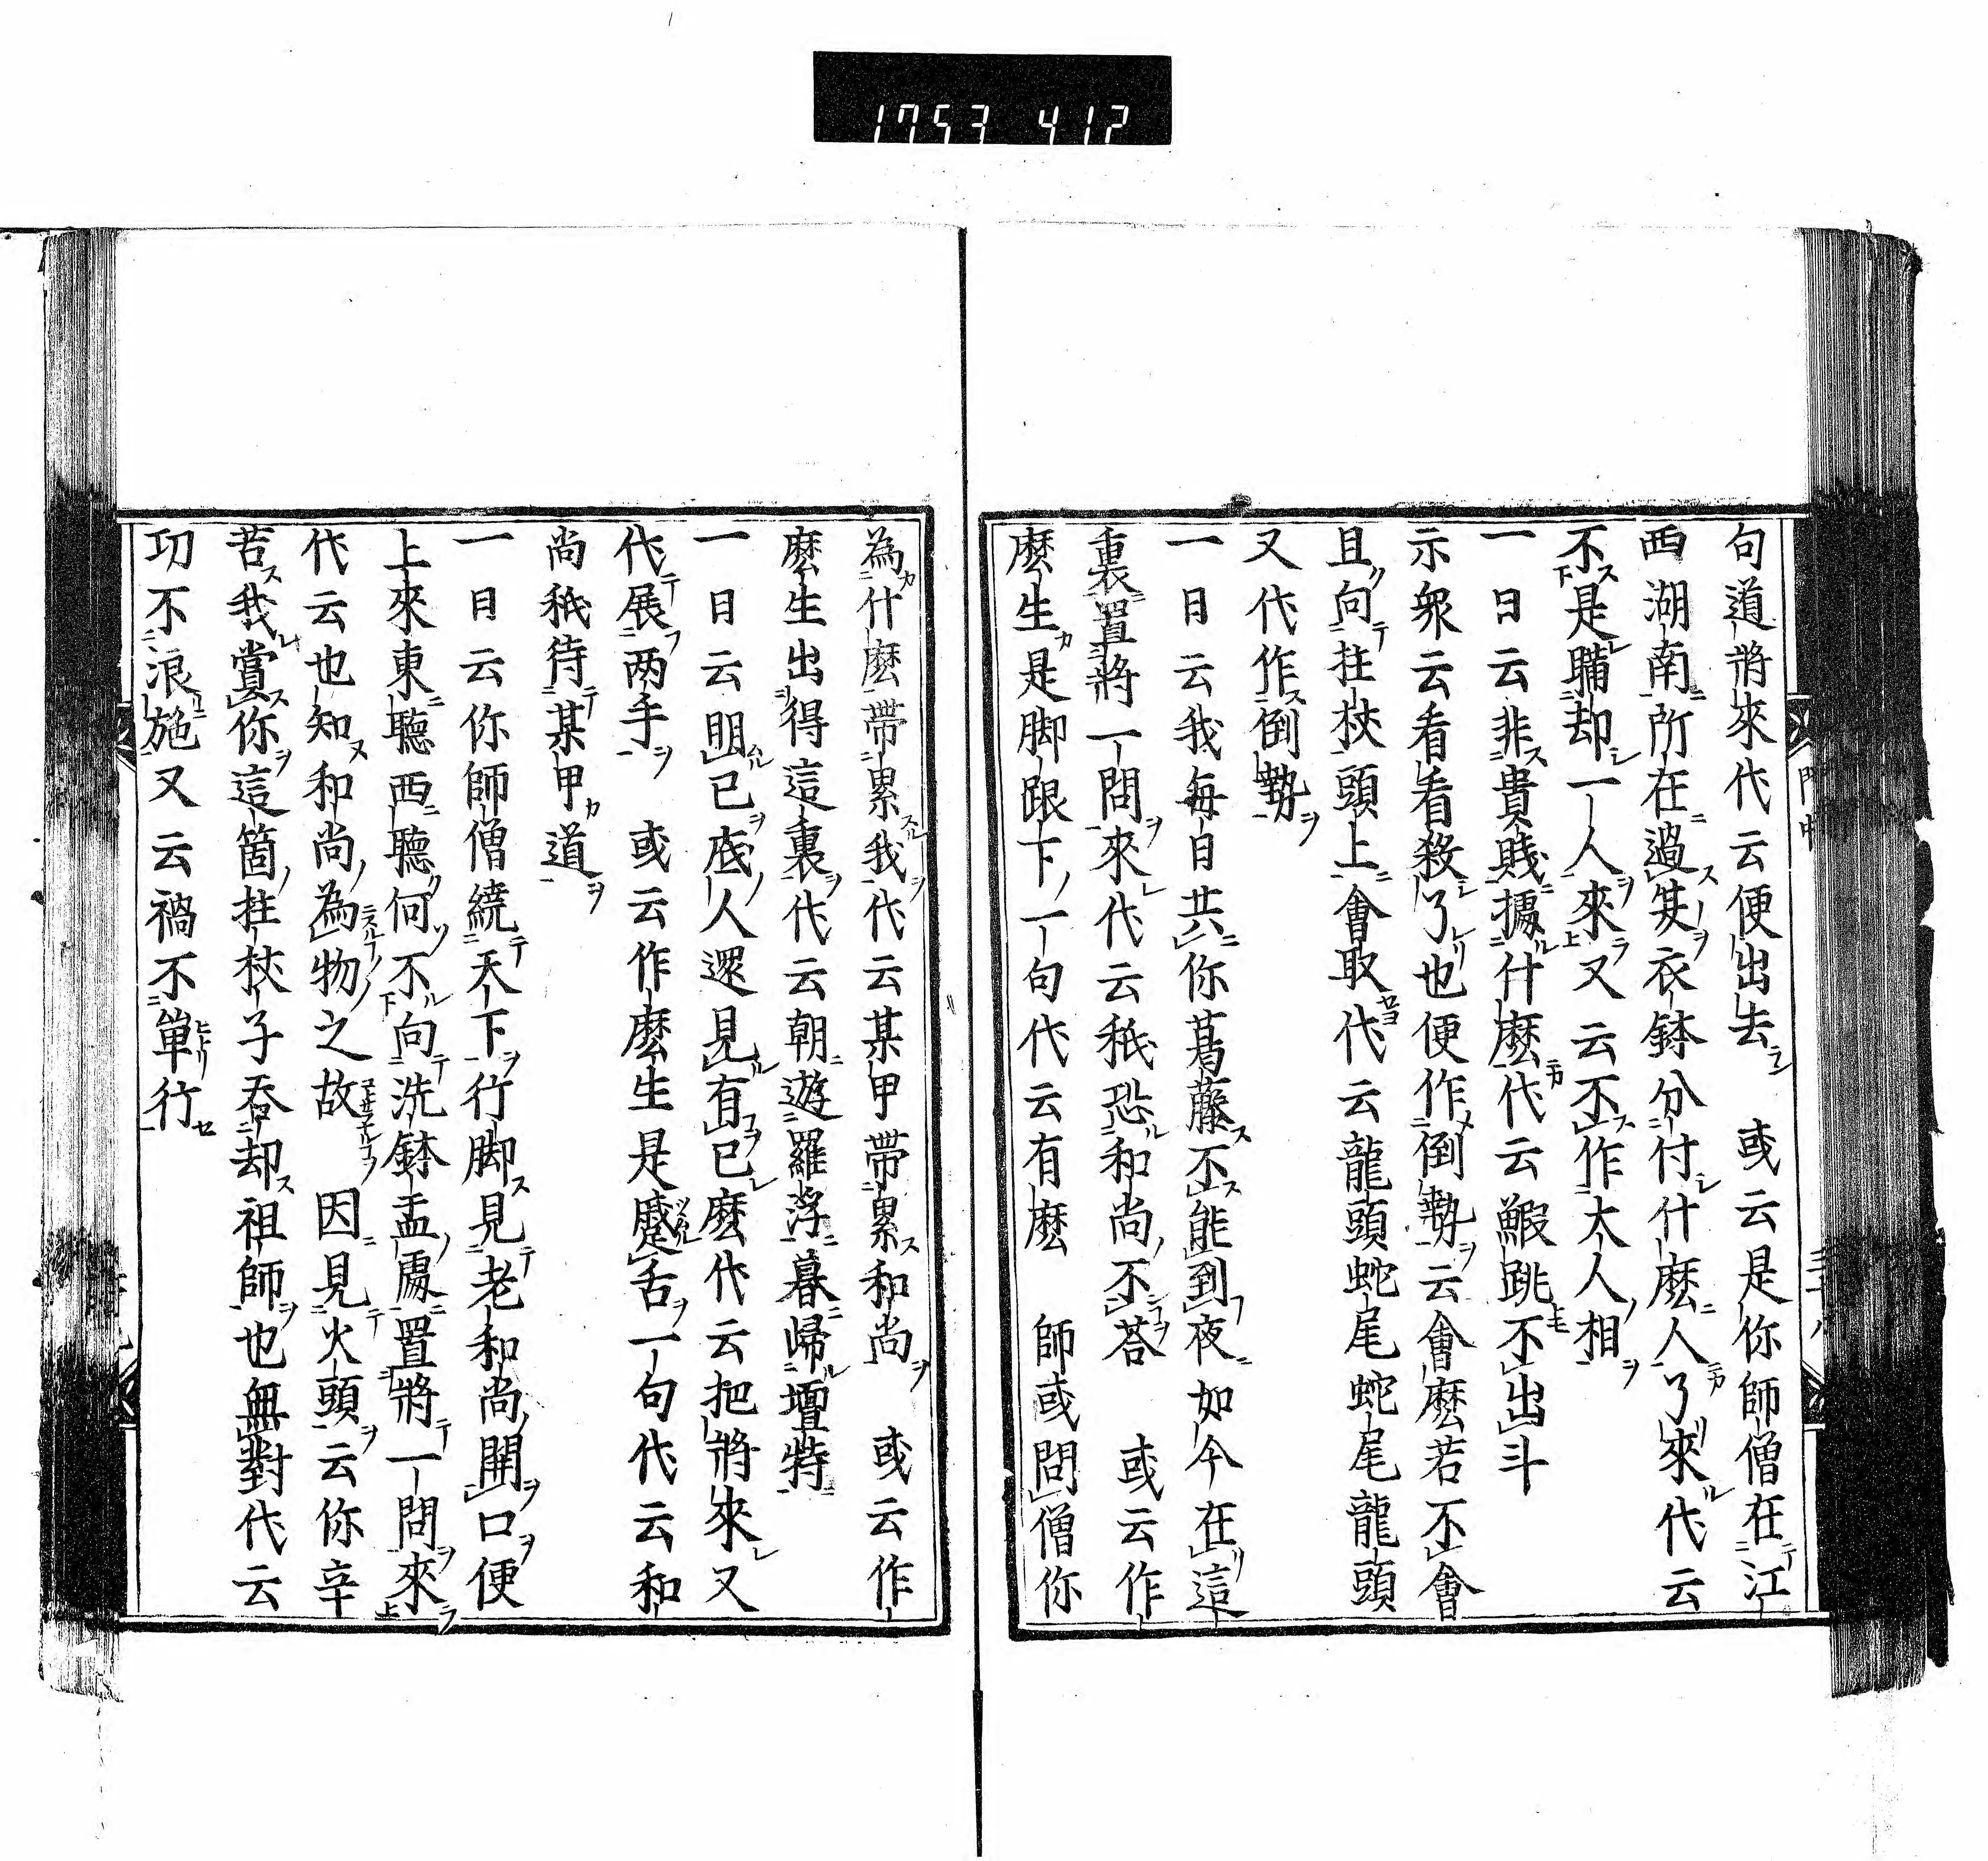 1753 412
句道將來代云便出去　或云是你師僧在江
西湖南所在過其衣鉢分付什麼人了來代云
不是瞞却一人來又云不作大人相
一日云非貴賤據什麼代云鰕跳不出斗
示衆云看看殺了也便作倒勢云會麼若不會
且向拄杖頭上會取代云龍頭蛇尾蛇尾龍頭
又代作倒勢
一日云我每日共你葛藤不能到夜如今在這
裏置將一問來代云秖恐和尚不荅　或云作
麼生是脚跟下一句代云有麼　師或問僧你
為什麼帶累我代云某甲帶累和尚　或云作
麼生出得這裏代云朝遊羅浮暮歸壇特
一日云明已底人還見有已麼代云把將來又
代展两手　或云作麼生是蹙舌一句代云和
尚秖待某甲道
一日云你師僧繞天下行脚見老和尚開口便
上來東聽西聽何不向洗鉢盂處置將一問來
代云也知和尚為物之故　因見火頭云你辛
苦我賞你這箇拄杖子吞却祖師也無對代云
功不浪施又云禍不單行